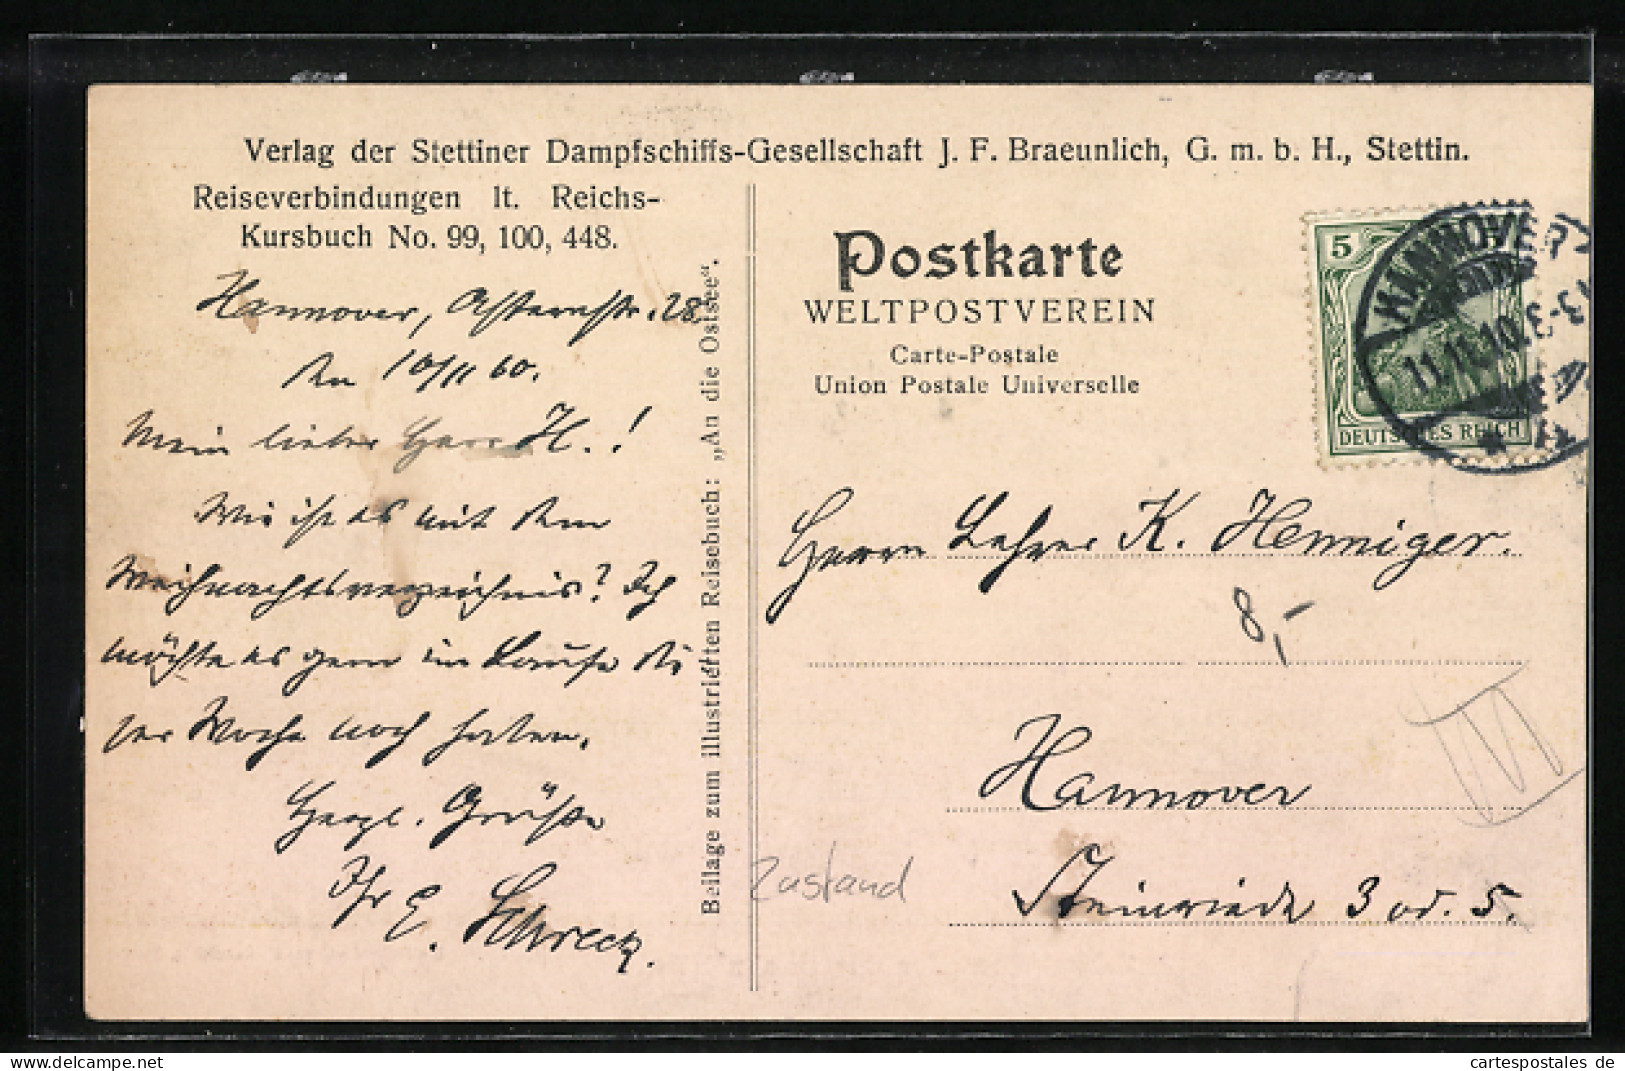 Verlag der Stettiner Dampfschiffs-Gesellschaft J. F. Braeunlich, G. m. b. H., Stettin.
Reiseverbindungen lt. Reichs-
Kursbuch No. 99, 100, 448.
Hannover, Asternstr. 28
den 10/11 10.
Mein lieber Herr H.!
Wie ist es mit dem
Weihnachtsverzeichnis? Ich
möchte es gern im Laufe die
ser Woche noch haben.
Herzl. Grüße
Ihr E. Schreck.
Beilage zum illustrierten Reisebuch: „An die Ostsee“.
Postkarte
WELTPOSTVEREIN
Carte-Postale
Union Postale Universelle
5
DEUTSCHES REICH
HANNOVER
11.11.10.
Herrn Lehrer K. Henniger.
8,-
Hannover
Steinriede 3 od. 5.
Zustand
cartespostales de